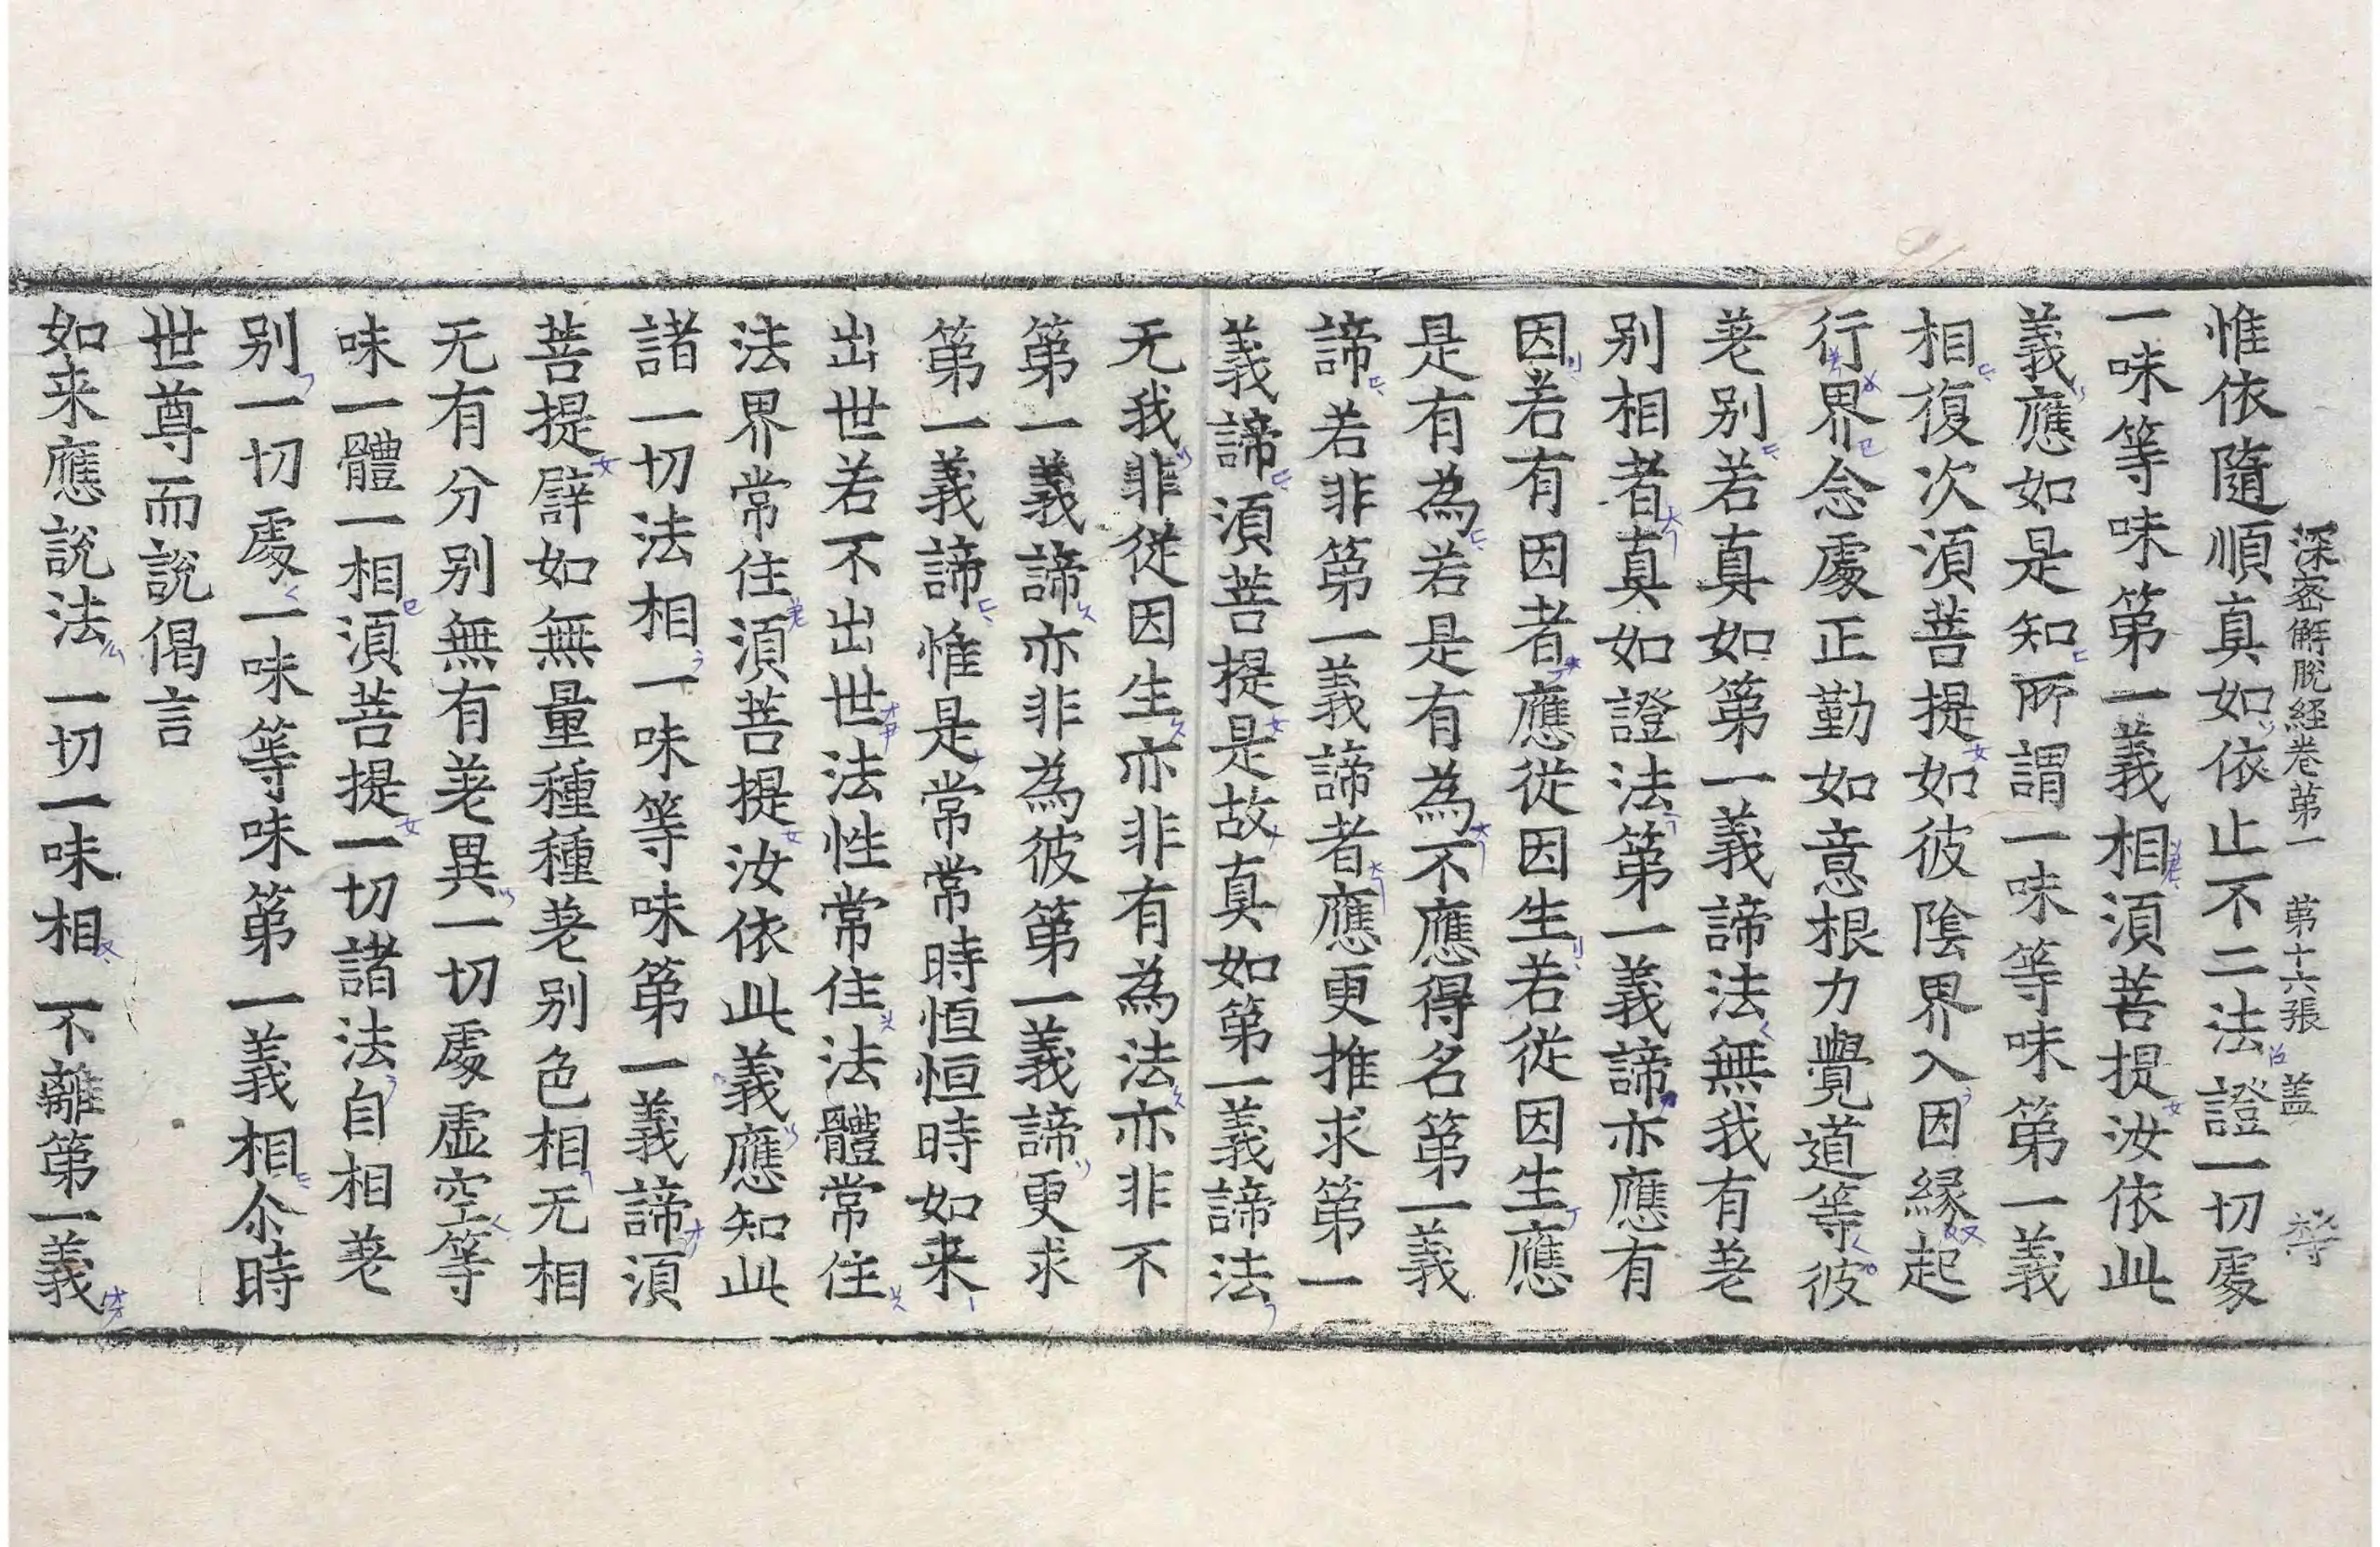 深密解脱経巻第一 第十六張 盖
惟依隨順真如依止不二法證一切處
一味等味第一義相湏菩提汝依此
義應如是知所謂一味等味第一義
相復次湏菩提如彼陰界入因縁起
行界念處正勤如意根力覺道等彼
差别若真如第一義諦法無我有差
别相者真如證法第一義諦亦應有
因若有因者應從因生若從因生應
是有為若是有為不應得名第一義
諦若非第一義諦者應更推求第一
義諦湏菩提是故真如第一義諦法
无我非從因生亦非有為法亦非不
第一義諦亦非為彼第一義諦更求
第一義諦惟是常常時恒恒時如来
出世若不出世法性常住法體常住
法界常住湏菩提汝依此義應知此
諸一切法相一味等味第一義諦湏
菩提譬如無量種種差别色相无相
无有分别無有差異一切處虚空等
味一體一相湏菩提一切諸法自相差
别一切處一味等味第一義相尒時
世尊而說偈言
如来應說法 一切一味相 不離第一義